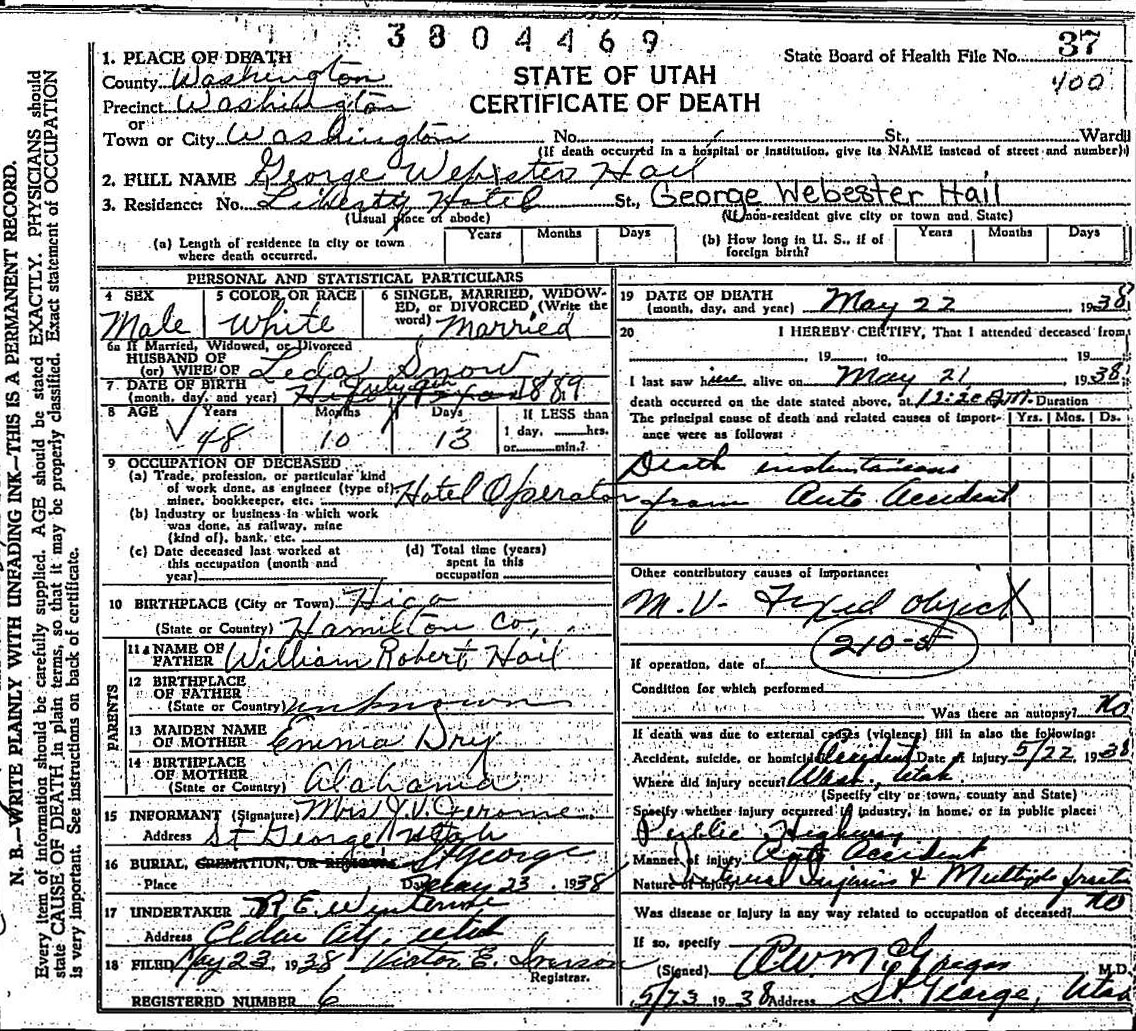 3804469
State Board of Health File No. 37
400
STATE OF UTAH
CERTIFICATE OF DEATH
1. PLACE OF DEATH
County Washington
Precinct Washington
or
Town or City Washington No. St., Ward
(If death occurred in a hospital or institution, give its NAME instead of street and number)
2. FULL NAME George Webster Hail
3. Residence: No. Liberty Hotel St., George Webester Hail
(Usual place of abode) (If non-resident give city or town and State)
(a) Length of residence in city or town where death occurred. Years Months Days (b) How long in U. S., if of foreign birth? Years Months Days
PERSONAL AND STATISTICAL PARTICULARS
4 SEX Male
5 COLOR OR RACE White
6 SINGLE, MARRIED, WIDOWED, OR DIVORCED (Write the word) Married
6a If Married, Widowed, or Divorced
HUSBAND OF
(or) WIFE OF Leda Snow
7 DATE OF BIRTH
(month, day, and year) July 9th 1889
8 AGE Years Months Days If LESS than
48 10 13 1 day, hrs.
or min.?
9 OCCUPATION OF DECEASED
(a) Trade, profession, or particular kind
of work done, as engineer (type of)
miner, bookkeeper, etc. Hotel Operator
(b) Industry or business in which work
was done, as railway, mine
(kind of), bank, etc.
(c) Date deceased last worked at
this occupation (month and
year)
(d) Total time (years)
spent in this
occupation
10 BIRTHPLACE (City or Town) Hico
(State or Country) Hamilton Co,
PARENTS
11 NAME OF
FATHER William Robert Hail
12 BIRTHPLACE
OF FATHER
(State or Country) unknown
13 MAIDEN NAME
OF MOTHER Emma Dry
14 BIRTHPLACE
OF MOTHER
(State or Country) Alabama
15 INFORMANT (Signature) Mrs J.V. Jerome
Address St George, Utah
16 BURIAL, CREMATION, OR REMOVAL St George
Place Date May 23, 1938
17 UNDERTAKER R E
Address Cedar City, Utah
18 FILED May 23, 1938 Victor E. Iverson
Registrar.
REGISTERED NUMBER 6
19 DATE OF DEATH
(month, day, and year) May 22 1938
20 I HEREBY CERTIFY, That I attended deceased from
, 19 , to 19
I last saw him alive on May 21, 1938
death occurred on the date stated above, at 12:20 A.M. Duration
The principal cause of death and related causes of importance were as follows: Yrs. Mos. Ds.
Death instantaneous
from Auto Accident
Other contributory causes of importance:
M.V. - Fixed object
210-5
If operation, date of
Condition for which performed
Was there an autopsy? No
If death was due to external causes (violence) fill in also the following:
Accident, suicide, or homicide? Accident Date of injury 5/22 1938
Where did injury occur? Wash, Utah
(Specify city or town, county and State)
Specify whether injury occurred in industry, in home, or in public place:
Public Highway
Manner of injury Auto Accident
Nature of injury Internal Injuries & Multiple fract
Was disease or injury in any way related to occupation of deceased? No
If so, specify
(Signed) McGregor M.D.
5/23 1938 Address St George, Utah
N. B.—WRITE PLAINLY WITH UNFADING INK—THIS IS A PERMANENT RECORD.
Every item of information should be carefully supplied. AGE should be stated EXACTLY. PHYSICIANS should
state CAUSE OF DEATH in plain terms, so that it may be properly classified. Exact statement of OCCUPATION
is very important. See instructions on back of certificate.